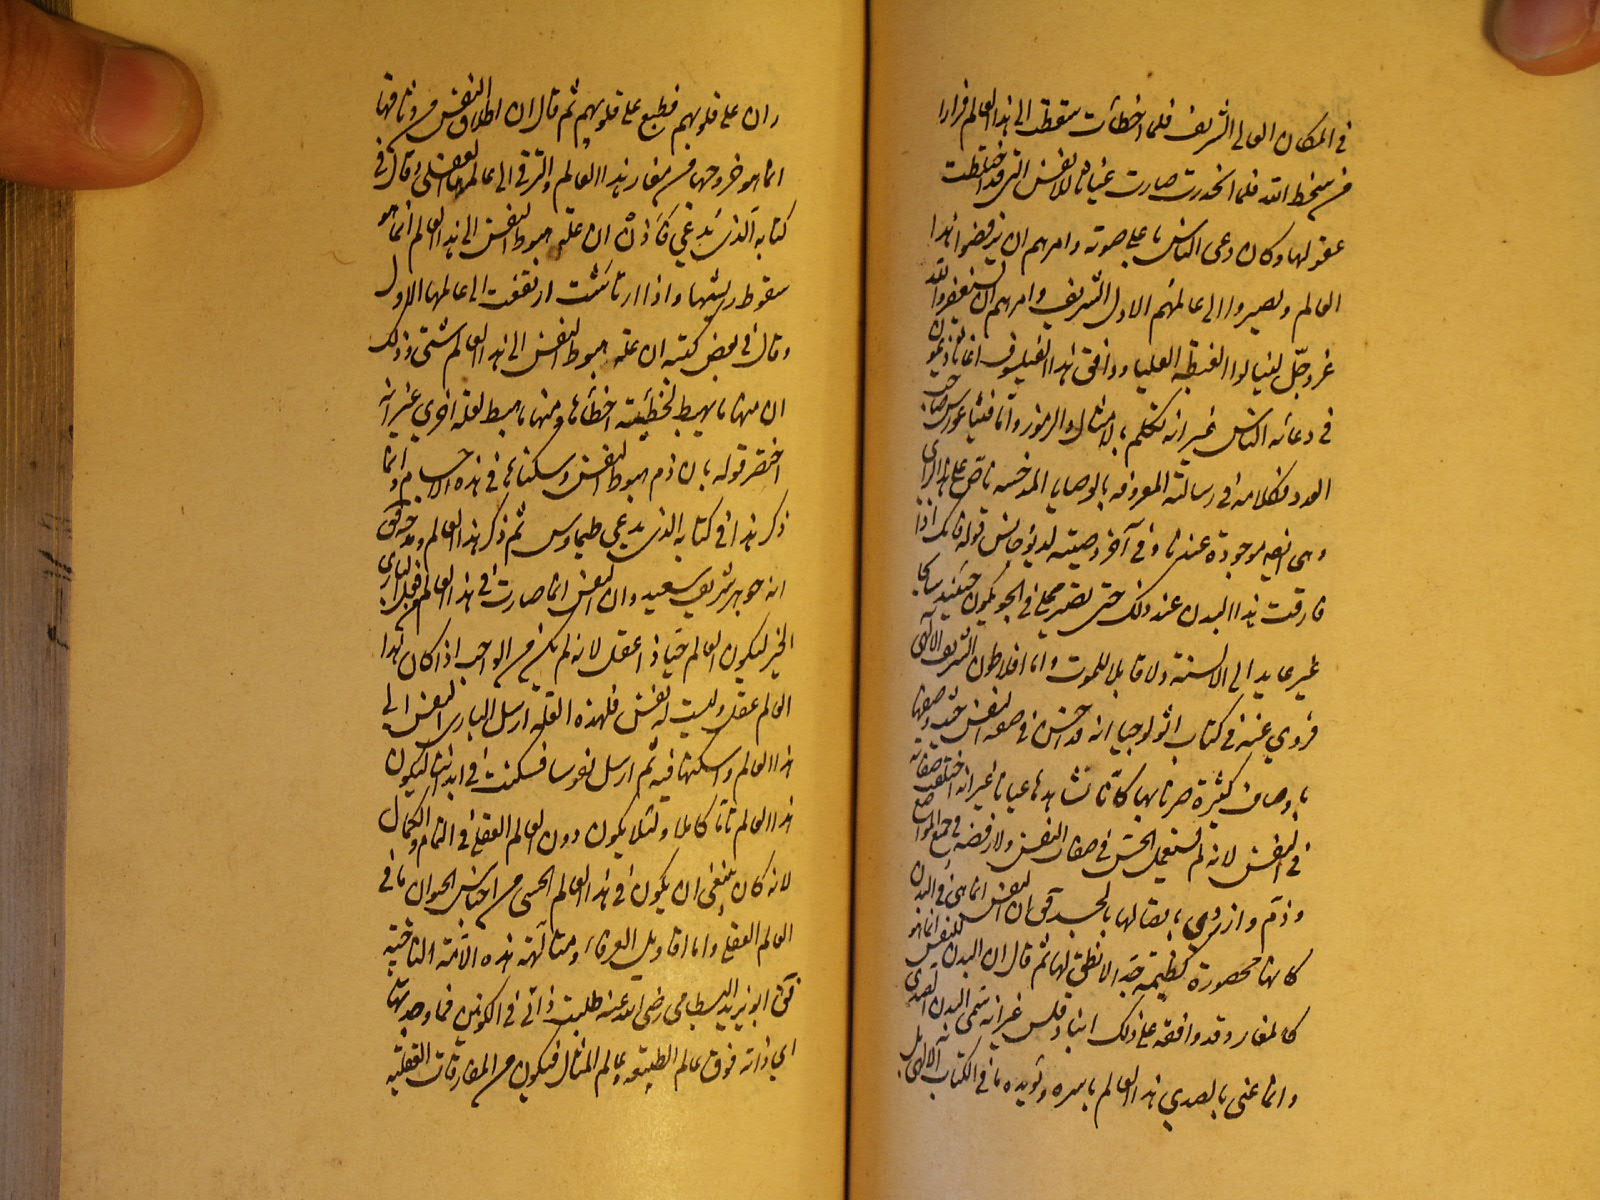 في المكان العالي الشريف فلما اخطأت سقطت الى هذا العالم فرارا
من سخط الله فلما انحدرت صارت غياثا للانفس التي قد اختلطت
عقولها وكان دعى الناس باعلى صوته وامرهم ان يرفضوا هذا
العالم ويصيروا الى عالمهم الاول الشريف وامرهم ان يستغفروا الله
عز وجل لينالوا الغبطة العليا ووافق هذا الفيلسوف اغاثاذيمون
في دعائه الناس غير انه تكلم بالامثال والرموز واما فيثاغورس صاحب
العدد فكلامه في رسالته المعروفه بالوصايا الذهبيه ناص على هذا الراى
وهى بعينه موجودة عندنا وفي آخر وصيته لديوجانس قوله فانك اذا
فارقت هذا البدن عند ذلك حتى تصير مخلى في الجو تكون حينئذ سائحا
غير عايد الى الانسية ولا قابلا للموت واما افلاطون الشريف الالهى
فروي عنه في كتاب اثولوجيا انه قد احسن في صفه النفس حيث وصفها
باوصاف كثيرة صرنا بها كانا نشاهدها عيانا غير انه اختلفت صفاته
في النفس لانه لم يستعمل الحس في صفات النفس ولا رفضه في جميع المواضع
وذم وازرى باتصالها بالجسد قال ان النفس انما هى في البدن
كانها محصورة كظيمة جدا لا نطق لها ثم قال ان البدن للنفس انما هو
كالمغار وقد وافقه على ذلك انباذقلس غير انه سمى البدن الصدى
وانما عنى بالصدي هذا العالم باسره ويؤيده ما في الكتاب الالهى بل
ران على قلوبهم فطبع على قلوبهم ثم قال ان اطلاق النفس من وثاقها
انما هو خروجها من مغار هذا العالم والترقى الى عالمها العقلى وقال في
كتابه الذى يدعى فاذن ان علة هبوط النفس الى هذا العالم انما هو
سقوط ريشها واذا ارتاشت ارتفعت الى عالمها الاول
وقال في بعض كتبه ان علة هبوط النفس الى هذا العالم شتى وذلك
ان منها ما يهبط لخطيئته اخطأها ومنها ما هبط لعلة اخرى غير انه
اختصر قوله بان ذم هبوط النفس وسكناها في هذه الاجسام وانما
ذكر هذا في كتابه الذى يدعى طيماوس ثم ذكر هذا العالم ومدحه فقال
انه جوهر شريف سعيد وان النفس انما صارت في هذا العالم من فعل البارى
الخير ليكون العالم حيا ذا عقل لانه لم يكن من الواجب اذا كان هذا
العالم عقلا وليست له نفس فلهذه العلة ارسل البارى النفس الى
هذا العالم واسكنها فيه ثم ارسل نفوسنا فسكنت في ابداننا ليكون
هذا العالم تاما كاملا ولئلا يكون دون العالم العقلى في التمام والكمال
لانه كان ينبغى ان يكون في هذا العالم الحسى من اجناس الحيوان ما في
العالم العقلى واما اقاويل العرفاء ومتالهة هذه الامة الناجية
قال ابو يزيد البسطامى رضى الله عنه طلبت ذاتى في الكونين فما وجدتها
اي ذاته فوق عالم الطبيعه وعالم المثال فيكون من المفارقات العقلية